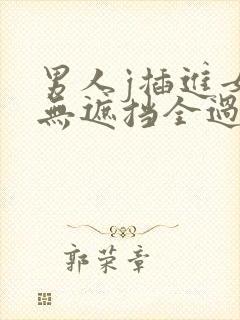 男人j插进
無遮挡全過
郭荣章